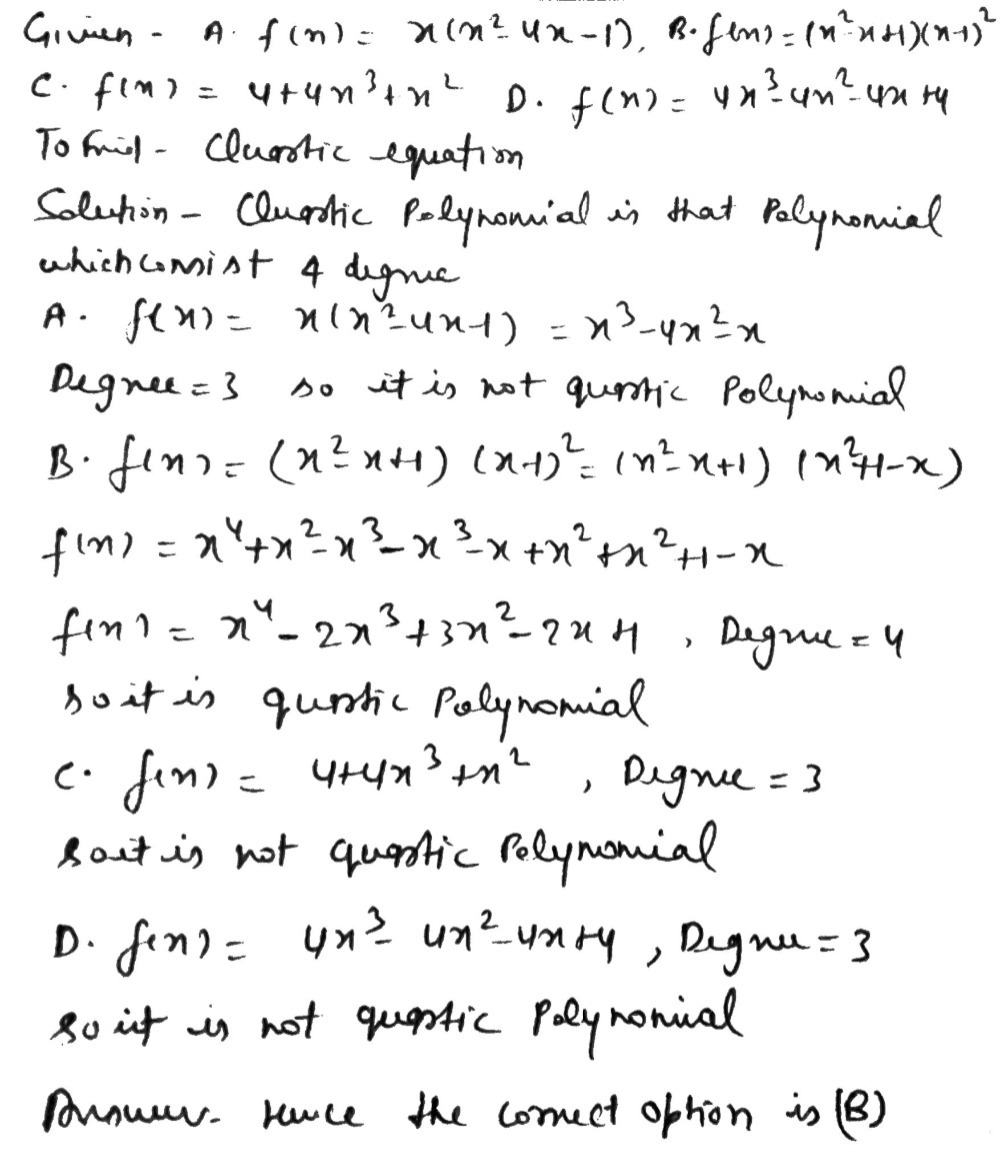 Given - A. f(x) = x(x²-4x-1), B. f(x) = (x²-x+1)(x-1)²
C. f(x) = 4+4x³+x² D. f(x) = 4x³-4x²-4x+4
To find - Quartic equation
Solution - Quartic Polynomial is that Polynomial
which consist 4 degree
A. f(x) = x(x²-4x-1) = x³-4x²-x
Degree = 3 so it is not quartic Polynomial
B. f(x) = (x²-x+1) (x-1)² = (x²-x+1) (x²+1-x)
f(x) = x⁴+x²-x³-x³-x+x²+x²+1-x
f(x) = x⁴-2x³+3x²-2x+1 , Degree = 4
so it is quartic Polynomial
C. f(x) = 4+4x³+x² , Degree = 3
so it is not quartic Polynomial
D. f(x) = 4x³-4x²-4x+4 , Degree = 3
so it is not quartic Polynomial
Answer- Hence the correct option is (B)